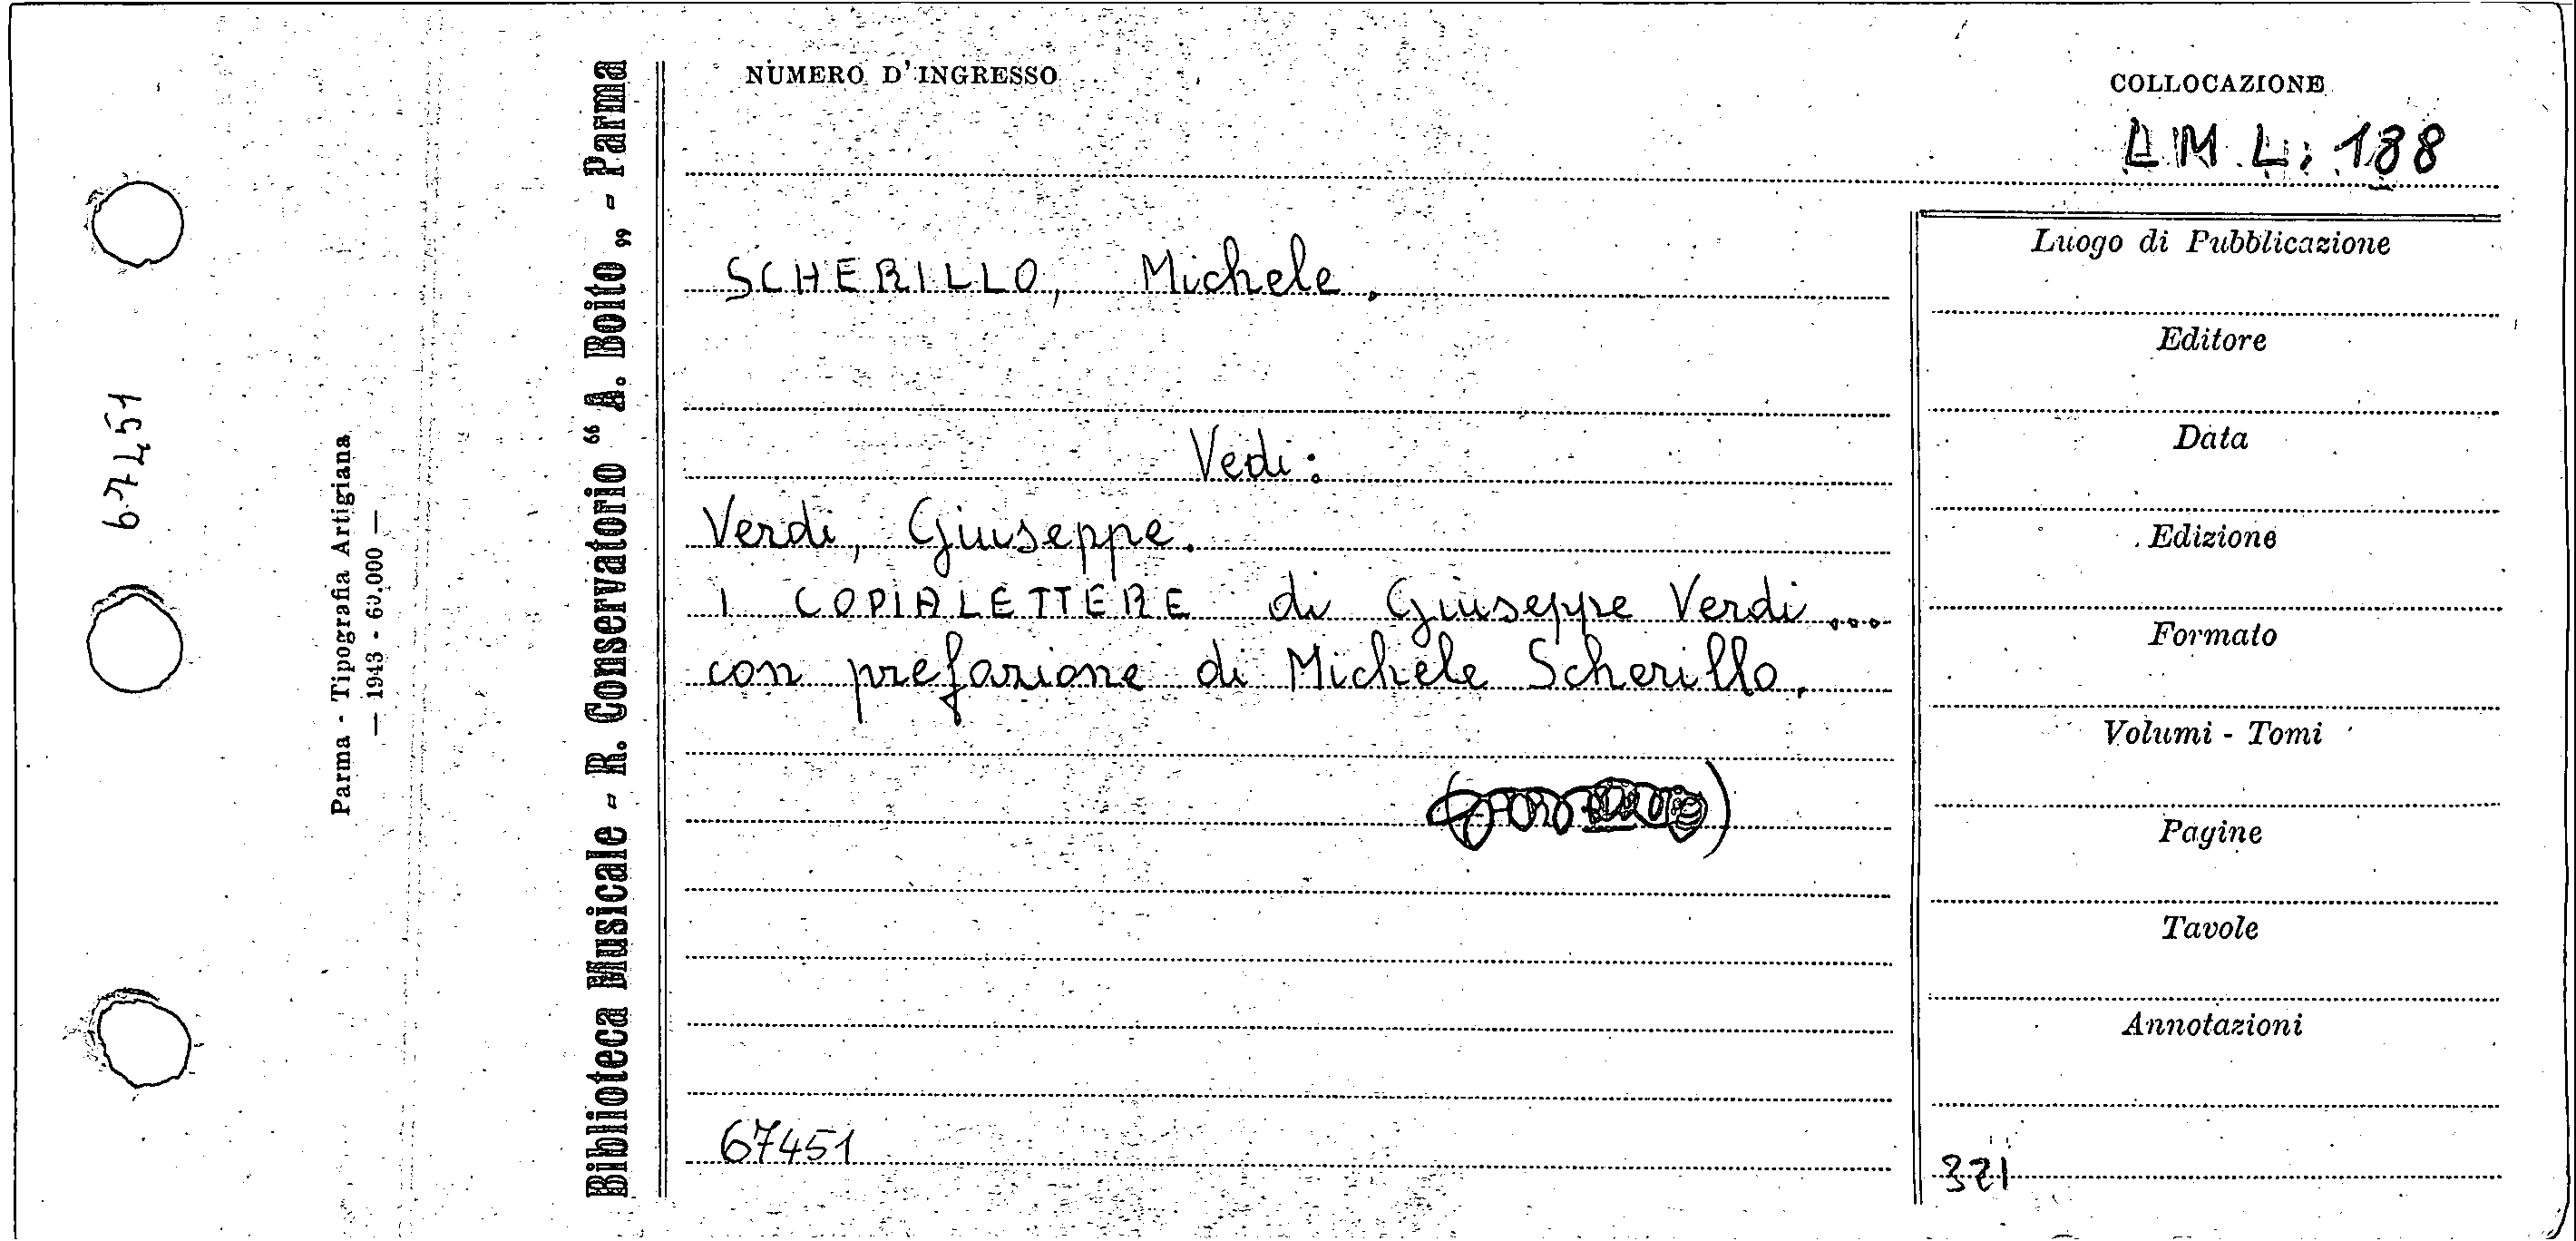 NUMERO D'INGRESSO
COLLOCAZIONE
L.M.L: 188
SCHERILLO, Michele.
Vedi:
Verdi, Giuseppe.
I COPIALETTERE di Giuseppe Verdi...
con prefazione di Michele Scherillo.
67451
Luogo di Pubblicazione
Editore
Data
Edizione
Formato
Volumi - Tomi
Pagine
Tavole
Annotazioni
321
Biblioteca Musicale - R. Conservatorio “ A. Boito „ - Parma
Parma - Tipografia Artigiana
— 1943 - 60.000 —
67451